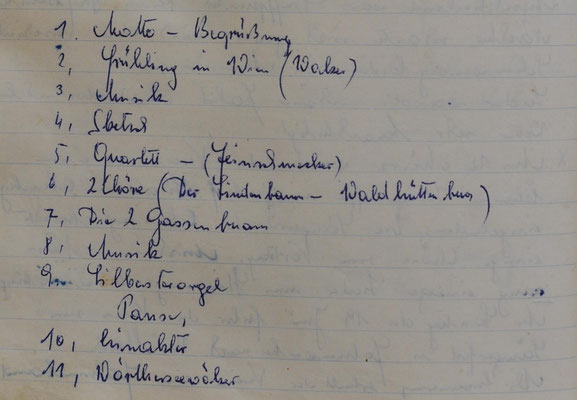 1. Motto - Begrüßung
2, Frühling in Wien (Walzer)
3, Musik
4, Sketsch
5, Quartett - (Feinschmecker)
6, 2 Chöre (Der Lindenbaum - Waldhüttenbua)
7, Die 2 Gassenbuam
8, Musik
9. Silvesterorgel
Pause,
10, Einakter
11, Wörtherseewalzer